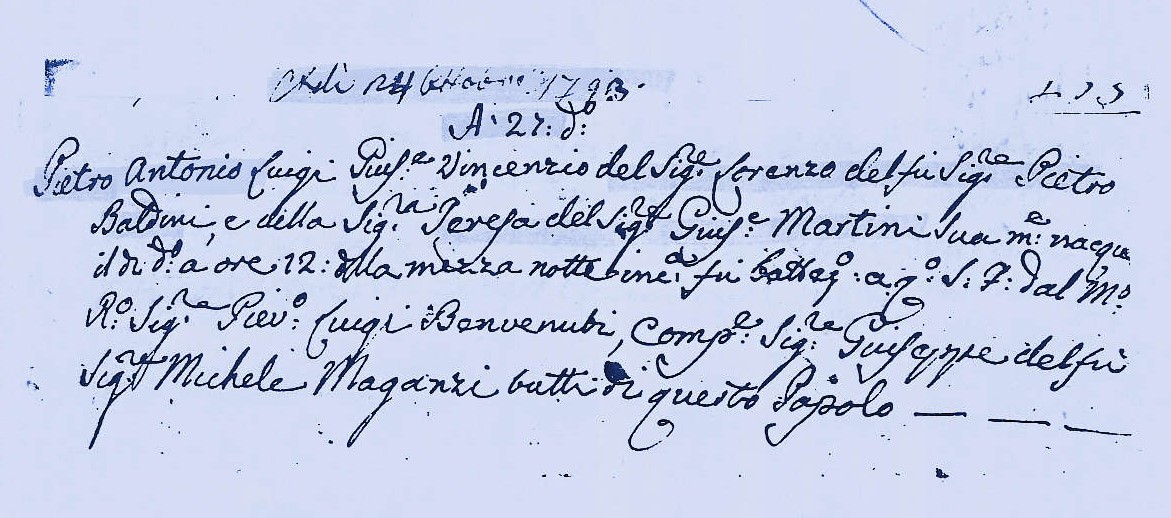 Adì 24 Ottobre 1793.
A' 27: d.º
Pietro Antonio Luigi Gius.e Vincenzio del Sig.re Lorenzo del fù Sig.re Pietro
Baldini, e della Sig.ra Teresa del Sig.re Gius.e Martini sua m.e nacque
il dì d.º à ore 12: della mezza notte fù battez.º a q.º S. F: dal M.º
R.º Sig.re Piev.º Luigi Benvenuti, Comp.e Sig.re Giuseppe del fù
Sig.re Michele Maganzi tutti di questo Popolo — — —